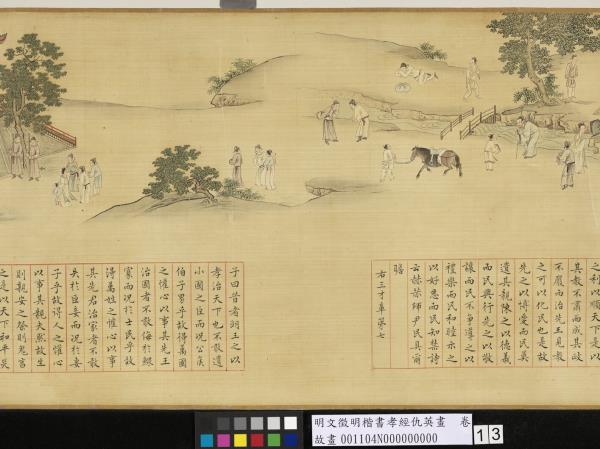 之利以順天下是以
其教不肅而成其政
不嚴而治先王見教
之可以化民也是故
先之以博愛而民莫
遺其親陳之以德義
而民興行先之以敬
讓而民不爭導之以
禮樂而民和睦示之
以好惡而民知禁詩
云赫赫師尹民具爾
瞻
右三才章第七
子曰昔者明王之以
孝治天下也不敢遺
小國之臣而況公侯
伯子男乎故得萬國
之懽心以事其先王
治國者不敢侮於鰥
寡而況於士民乎故
得百姓之懽心以事
其先君治家者不敢
失於臣妾而況於妻
子乎故得人之懽心
以事其親夫然故生
則親安之祭則鬼享
之是以天下和平災
明文徵明楷書孝經仇英畫 卷
故畫 001104N000000000
13